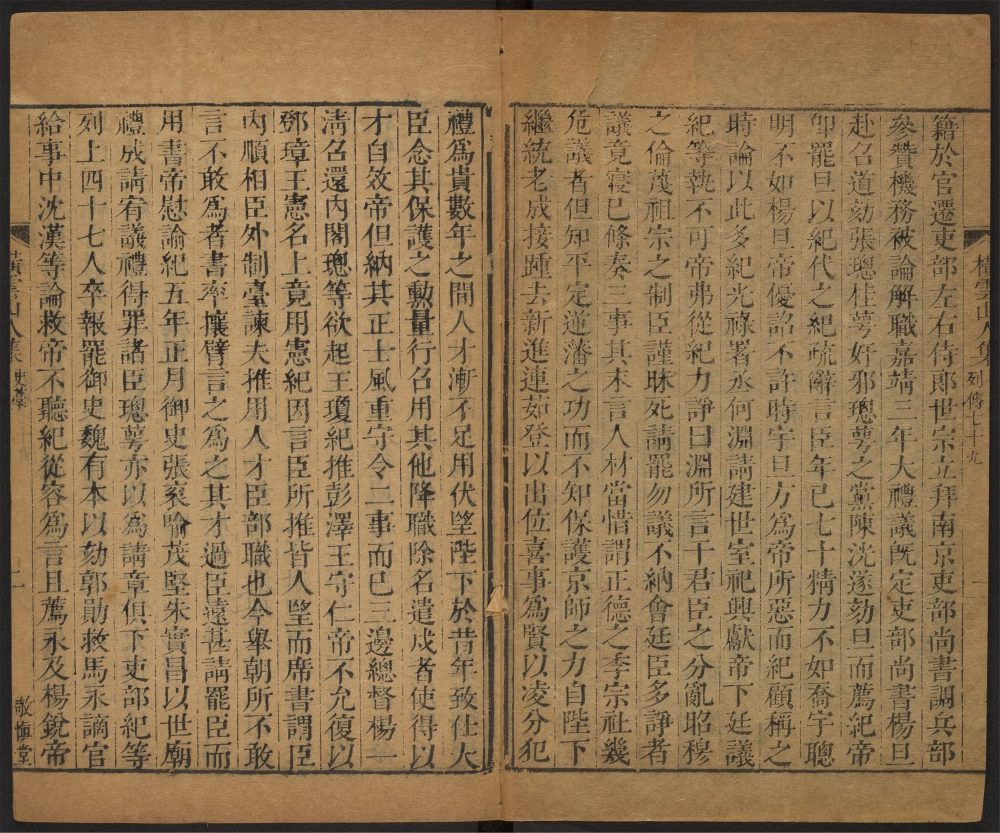 籍於官遷吏部左右侍郎世宗立拜南京吏部尚書調兵部
參贊機務被論解職嘉靖三年大禮議既定吏部尚書楊旦
赴召道劾張璁桂萼奸邪璁萼之黨陳洸遂劾旦而薦紀帝
卽罷旦以紀代之紀疏辭言臣年已七十精力不如喬宇聰
明不如楊旦帝優詔不許時宇旦方為帝所惡而紀顧稱之
時論以此多紀光祿署丞何淵請建世室祀興獻帝下廷議
紀等執不可帝弗從紀力諍曰淵所言干君臣之分亂昭穆
之倫蔑祖宗之制臣謹昧死請罷勿議不納會廷臣多諍者
議竟寢已條奏三事其末言人材當惜謂正德之季宗社幾
危議者但知平定逆藩之功而不知保護京師之力自陛下
繼統老成接踵去新進連茹登以出位喜事為賢以凌分犯
橫雲山人集
列傳七十九
禮為貴數年之間人才漸不足用伏望陛下於昔年致仕大
臣念其保護之勳量行召用其他降職除名遣戍者使得以
才自效帝但納其正士風重守令二事而已三邊總督楊一
清召還內閣璁等欲起王瓊紀推彭澤王守仁帝不允復以
鄧璋王憲名上竟用憲紀因言臣所推皆人望而席書謂臣
內順相臣外制臺諫夫推用人才臣部職也今舉朝所不敢
言不敢為者書率攘臂言之為之其才過臣遠甚請罷臣而
用書帝慰諭紀五年正月御史張袞喻茂堅朱實昌以世廟
禮成請宥議禮得罪諸臣璁萼亦以為請章俱下吏部紀等
列上四十七人卒報罷御史魏有本以劾郭勛救馬永謫官
給事中沈漢等論救帝不聽紀從容為言且薦永及楊銳帝
橫雲山人集
史藁
一
敬慎堂